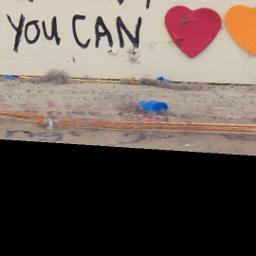 YOU CAN